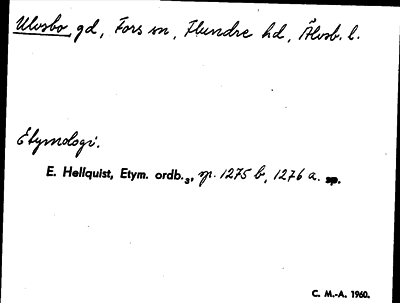 Ulvsbo gd, Fors sn, Flundre hd, Älvsb. l.
Etymologi.
E. Hellquist, Etym. ordb.3, sp. 1275 b, 1276 a.
C. M.-A. 1960.